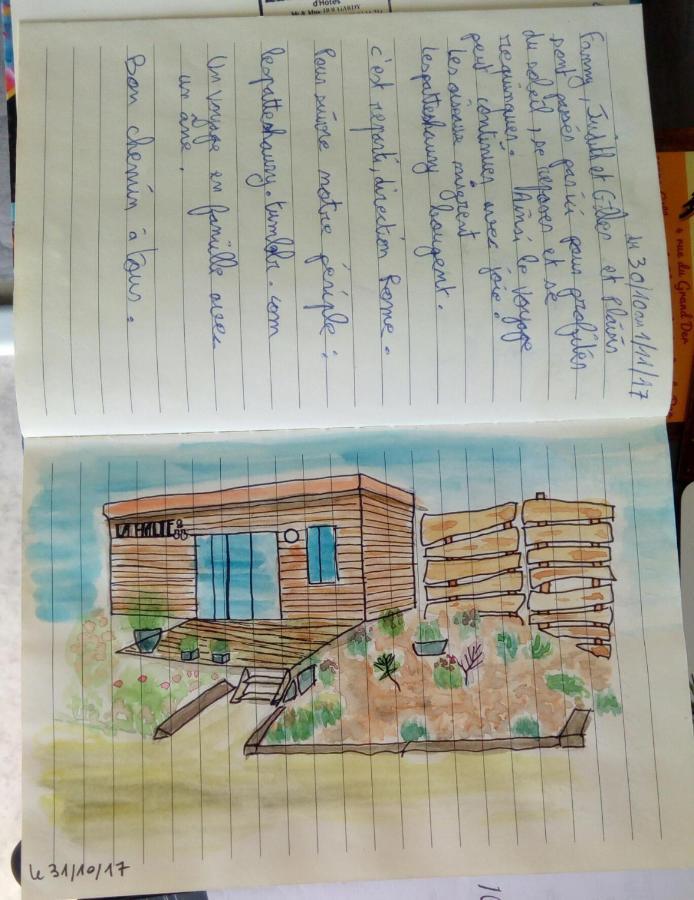 du 30/10 au 1/11/17
Fanny, Judith et Gilles et Plûm
sont passés par ici pour profiter
du soleil, se reposer et se
requinquer. Ainsi le voyage
peut continuer avec joie !
Les oiseaux migrent
Lespattesahuary bougent.
c'est reparti, direction Rome.
Pour suivre notre périple :
.tumblr.com
Un voyage en famille avec
un âne.
Bon chemin à tous.
LA HALTE
le 31/10/17
d'Hôtes
4 rue du Grand